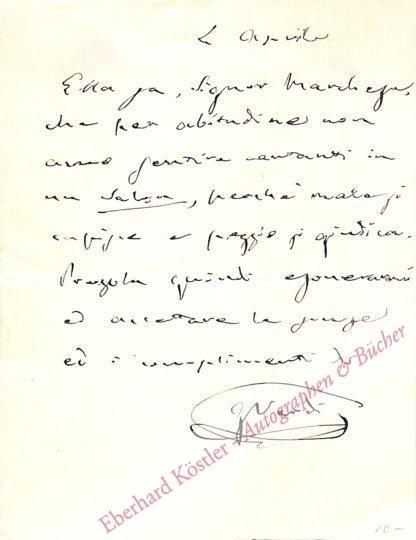 Ella sa, Signor Marchese,
che per abitudine non
amo sentire cantanti in
un Salon, perché male si
capisce e peggio si giudica.
Pregola quindi esonerarmi
ed accettare le scuse
ed i complimenti di
G Verdi
Eberhard Köstler - Autographen & Bücher
10-